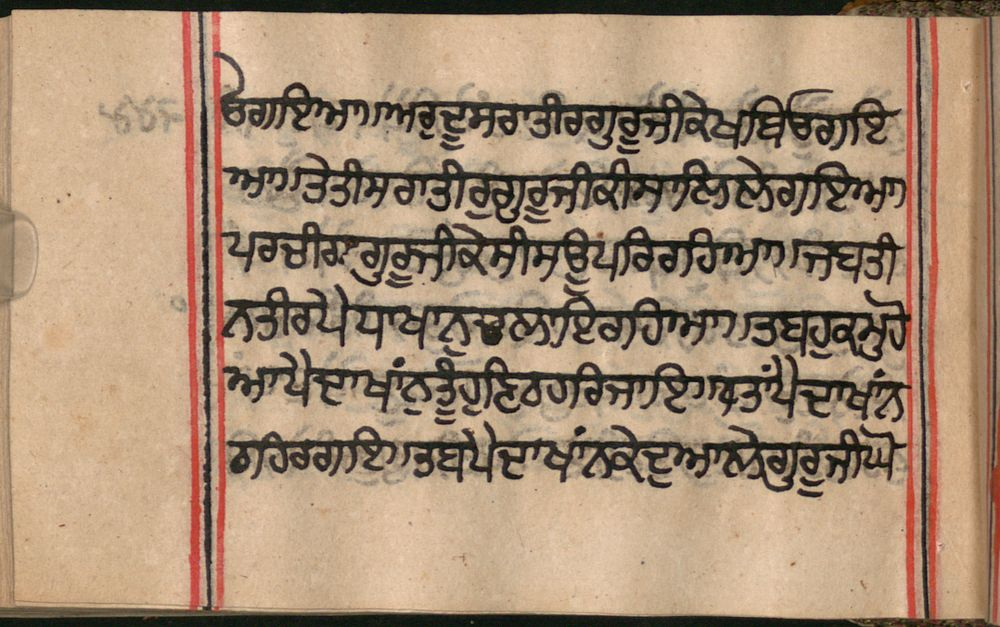 ਚੋਗਾਇਆ।ਅਰੁਦੂਸਰਾਤੀਰਗੁਰੂਜੀਕੇਖਬਿਚਗਾਇ
ਆ।ਤੇਤੀਸਰਾਤੀਰੁਗੁਰੂਜੀਕੀਸਾਲਿਲੇਗਾਇਆ
ਪਰਚੀਰਾਗੁਰੂਜੀਕੇਸੀਸਊਪਰਿਰਹਿਆ।ਜਬਤੀ
ਨਤੀਰਪੈਦਾਖਾਨੁਚਲਾਇਰਹਿਆ।ਤਬਹੁਕਮੁਹੋ
ਆਪੈਦਾਖਾਂਨੁਤੂੰਹੁਣਿਠਹਰਿਜਾਇ।ਤਾਂਪੈਦਾਖਾਂਨ
ਠਹਿਰਗਇ।ਤਬਪੈਦਾਖਾਂਨਕੇਦੁਆਲੇਗੁਰੂਜੀਘੋ